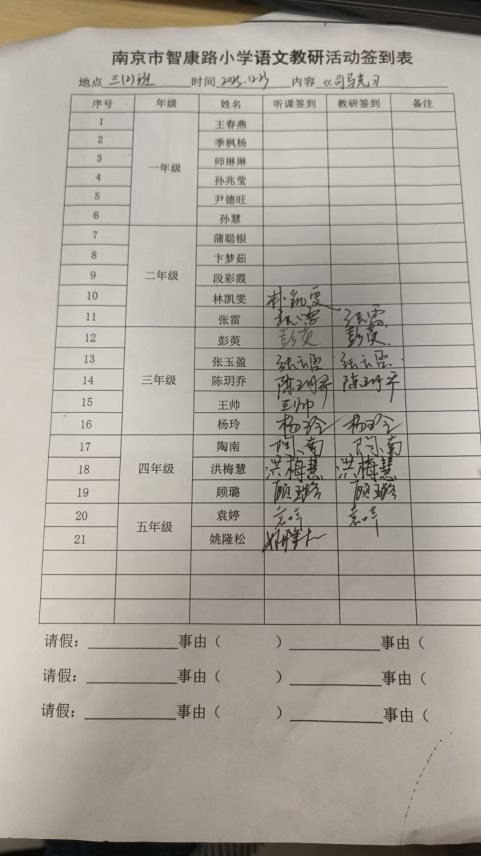 南京市智康路小学语文教研活动签到表
地点 三(2)班 时间 2025.12.23 内容 《司马光》
序号 年级 姓名 听课签到 教研签到 备注
1 一年级 王春燕
2 季枫杨
3 师琳琳
4 孙兆莹
5 尹德旺
6 孙慧
7 二年级 蒲聪银
8 卞梦茹
9 段彩霞
10 林凯雯 林凯雯
11 张雷 张雷 张雷
12 三年级 彭萸 彭萸 彭萸
13 张玉盈 张玉盈 张玉盈
14 陈玥乔 陈玥乔 陈玥乔
15 王帅 王帅
16 杨玲 杨玲 杨玲
17 四年级 陶南 陶南 陶南
18 洪梅慧 洪梅慧 洪梅慧
19 顾璐 顾璐 顾璐
20 五年级 袁婷 袁婷 袁婷
21 姚隆松 姚隆松
请假: 事由（ ） 事由（
请假: 事由（ ） 事由（
请假: 事由（ ） 事由（